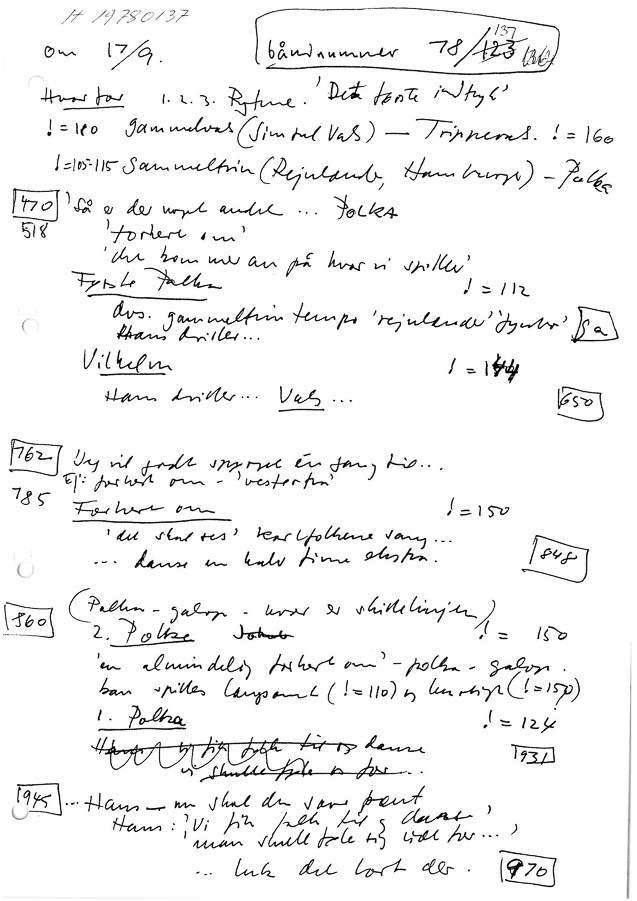 H 19780137
om 17/9.
båndnummer 78/123 137
Hvorfor 1. 2. 3. Rytme. 'Det første indtryk'
!=180 Gammelvals (Simpel Vals) — Trippevals. ! = 160
!=105-115 Gammeltrin (Rejnlænder, Hamburger) - Polka
470 'Så er der noget andet ... POLKA
518 'forkert om'
'det kommer an på hvor vi spiller'
Fynske Polka ! = 112
dvs. gammeltrin tempo 'rejnlænder' 'fynbo' Ga
Hans driller...
Vilhelm ! = 144
Hans driller... Vals ... 650
762 'Jeg vil godt spørge én gang til...
785 EJ: forkert om - 'vesterfra'
Forkert om ! = 150
'det skal ses' karlfolkene sang...
... danse en halv time ekstra. 848
860 (Polka - galop - hvor er skillelinjen)
2. Polka ! = 150
'en almindelig forkert om' - polka - galop.
kan spilles langsomt (! = 110) og hurtigt (! = 150)
1. Polka ! = 124
Hans: vi fik folk til at danse 1931
vi skulle tale os for...
1945 ... Hans — nu skal du svare pænt
Hans: 'Vi fik folk til at danse'
'man skulle tale sig lidt for ...'
... luk det bort der. 970